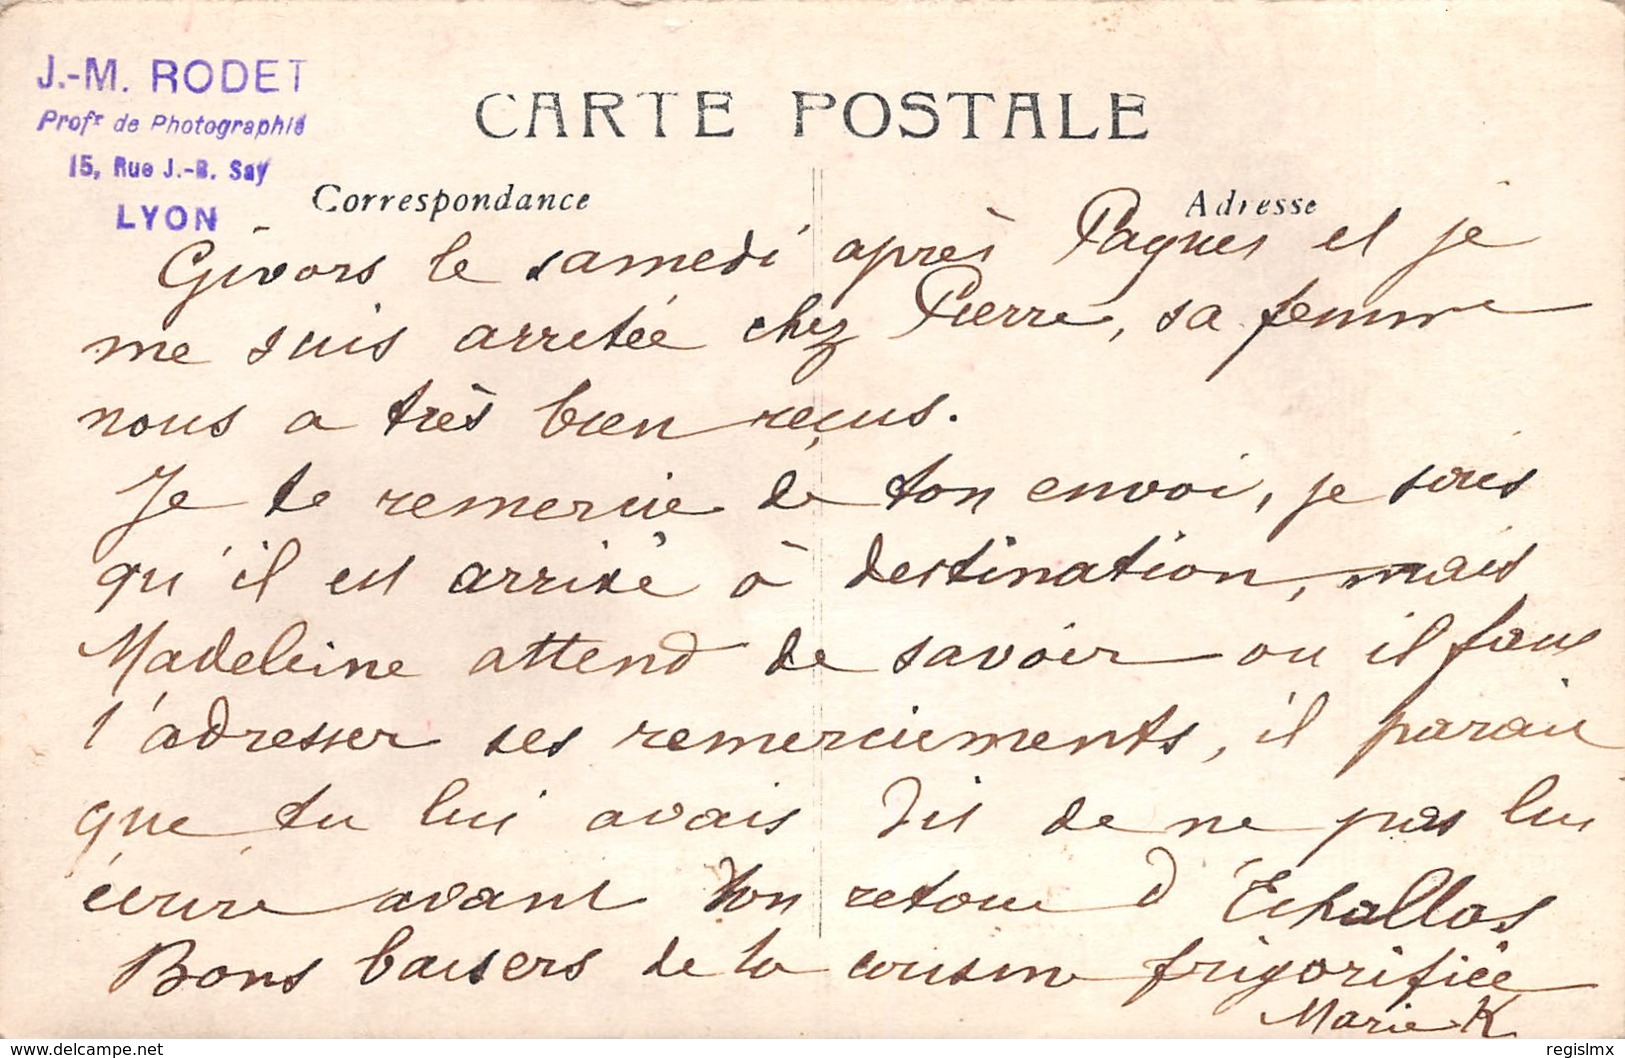 J.-M. RODET
Profr de Photographie
15, Rue J.-B. Say
LYON
CARTE POSTALE
Correspondance
Adresse
Givors le samedi après Paques et je
me suis arretée chez Pierre, sa femme
nous a très bien reçus.
Je te remercie de ton envoi, je sais
qu'il est arrivé à destination, mais
Madeleine attend de savoir ou il faut
t'adresser ses remerciements, il parait
que tu lui avais dit de ne pas lui
écrire avant ton retour d'Echallas
Bons baisers de ta cousine frigorifiée
Marie K
delcampe.net
regislmx